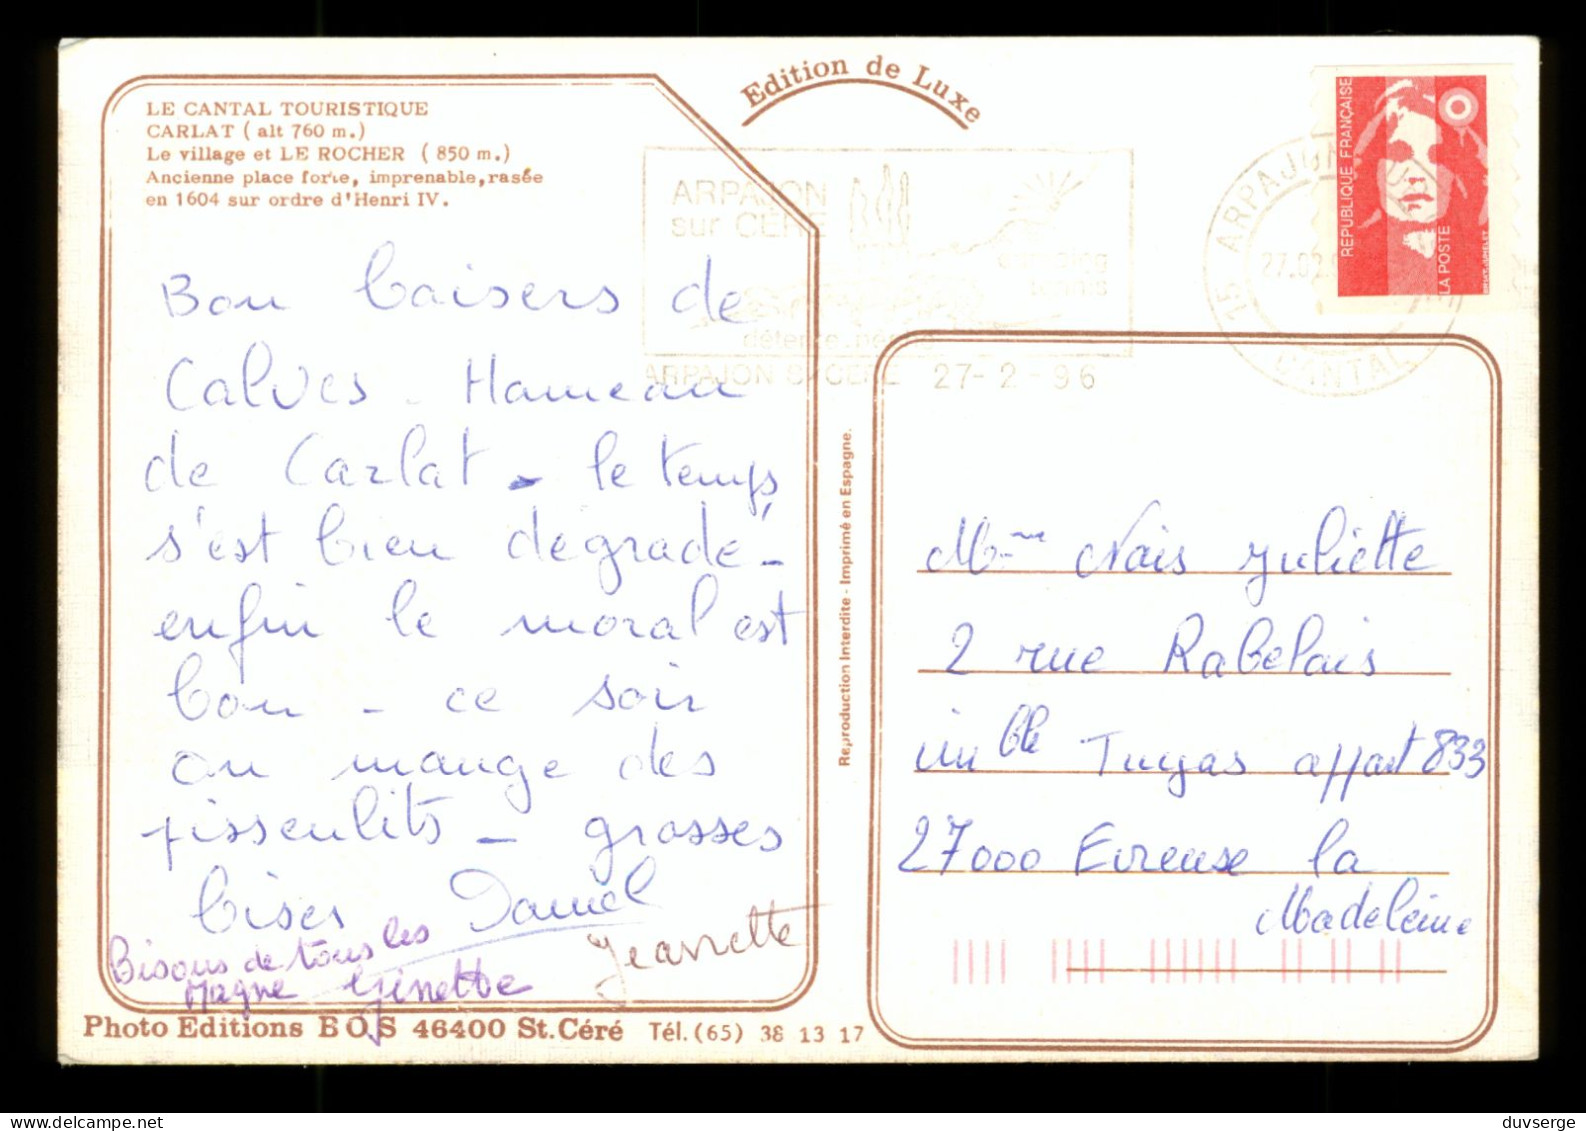 LE CANTAL TOURISTIQUE
CARLAT ( alt 760 m.)
Le village et LE ROCHER ( 850 m.)
Ancienne place forte, imprenable, rasée
en 1604 sur ordre d'Henri IV.
Edition de Luxe
Bon baisers de
Calves - Hameau
de Carlat - le temps
s'est bien dégradé -
enfin le moral est
bon - ce soir
on mange des
pissenlits - grosses
bises Daniel
Jeannette
Bisous de tous les
Magne Ginette
Photo Editions BOS 46400 St. Céré Tél. (65) 38 13 17
Reproduction Interdite - Imprimé en Espagne.
ARPAJON
sur CÈRE
camping
tennis
détente pêche
ARPAJON S/ CERE 27-2-96
15 ARPAJON
27.02
CANTAL
REPUBLIQUE FRANÇAISE
LA POSTE
Mme Nais Juliette
2 rue Rabelais
imble Tuyas appart 833
27000 Evreuse la
Madeleine
duvserge